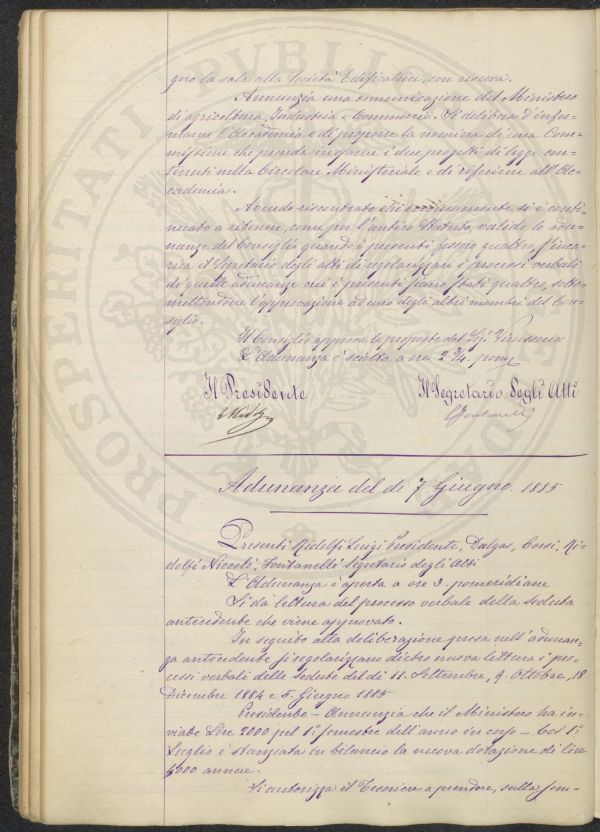 gno la sala alla Società Edificatrice, con riserva.
Annunzia una comunicazione del Ministero
di agricoltura, Industria e Commercio. Si delibera d'infor-
marne l'Accademia e di proporre la nomina di una Com-
missione che prenda in esame i due progetti di legge con-
tenuti nella Circolare Ministeriale e di riferirne all'Ac-
cademia.
Avendo riscontrato che erroneamente si è conti-
nuato a ritenere, come per l'antico Statuto, valide le adu-
nanze del Consiglio quando i presenti fossero quattro, s'inca-
rica il Segretario degli atti di regolarizzare i processi verbali
di quelle adunanze cui i presenti siano stati quattro, sotto-
mettendone l'approvazione ad uno degli altri membri del Con-
siglio.
Il Consiglio approva le proposte del Sig.
L'Adunanza è sciolta a ore 2 3/4 pom
Il Presidente Il Segretario Degli Atti
Adunanza del dì 7 Giugno 1885
Presenti Ridolfi Luigi Presidente, Dalgas, Corsi, Ri-
dolfi Niccolò, Fontanelli Segretario degli Atti
L'Adunanza è aperta a ore 3 pomeridiane
Si dà lettura del processo verbale della seduta
antecedente che viene approvato.
In seguito alla deliberazione presa nell'adunan-
za antecedente si regolarizzano dietro nuova lettura i pro-
cessi verbali delle sedute del dì 11. Settembre, 9. Ottobre, 18
Dicembre 1884 e 5. Giugno 1885
Presidente – Annunzia che il Ministero ha in-
viate Lire 2000 pel 1° semestre dell'anno in corso – Col 1°
Luglio è stanziata in bilancio la nuova dotazione di lire
5000 annue.
Si autorizza il Tesoriere a prendere, sulla som-
PROSPERITATI PVBLICAE